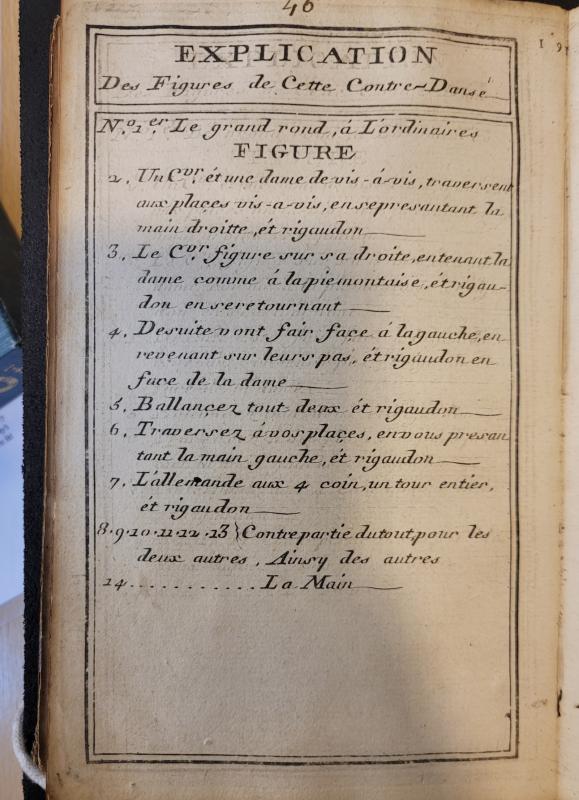 46
EXPLICATION
Des Figures de Cette Contre-Danse
N.º 1.er Le grand rond, á L'ordinaires
FIGURE
2. Un C.vr. ét une dame de vis-á-vis, traversent
aux plaçes vis-a-vis, en se presantant la
main droitte, ét rigaudon
3. Le C.vr. figure sur sa droite, en tenant la
dame comme á la piemontaise, ét rigau-
don en se retournant
4. Desuite vont fair façe á la gauche, en
revenant sur leurs pas, ét rigaudon en
façe de la dame
5. Ballançez tout deux ét rigaudon
6. Traversez á vos plaçes, en vous presan
tant la main gauche, ét rigaudon
7. L'allemande aux 4 coin, un tour entier,
ét rigaudon
8.9.10.11.12.13 } Contrepartie du tout, pour les
deux autres, Ainsy des autres
14 ........... La Main